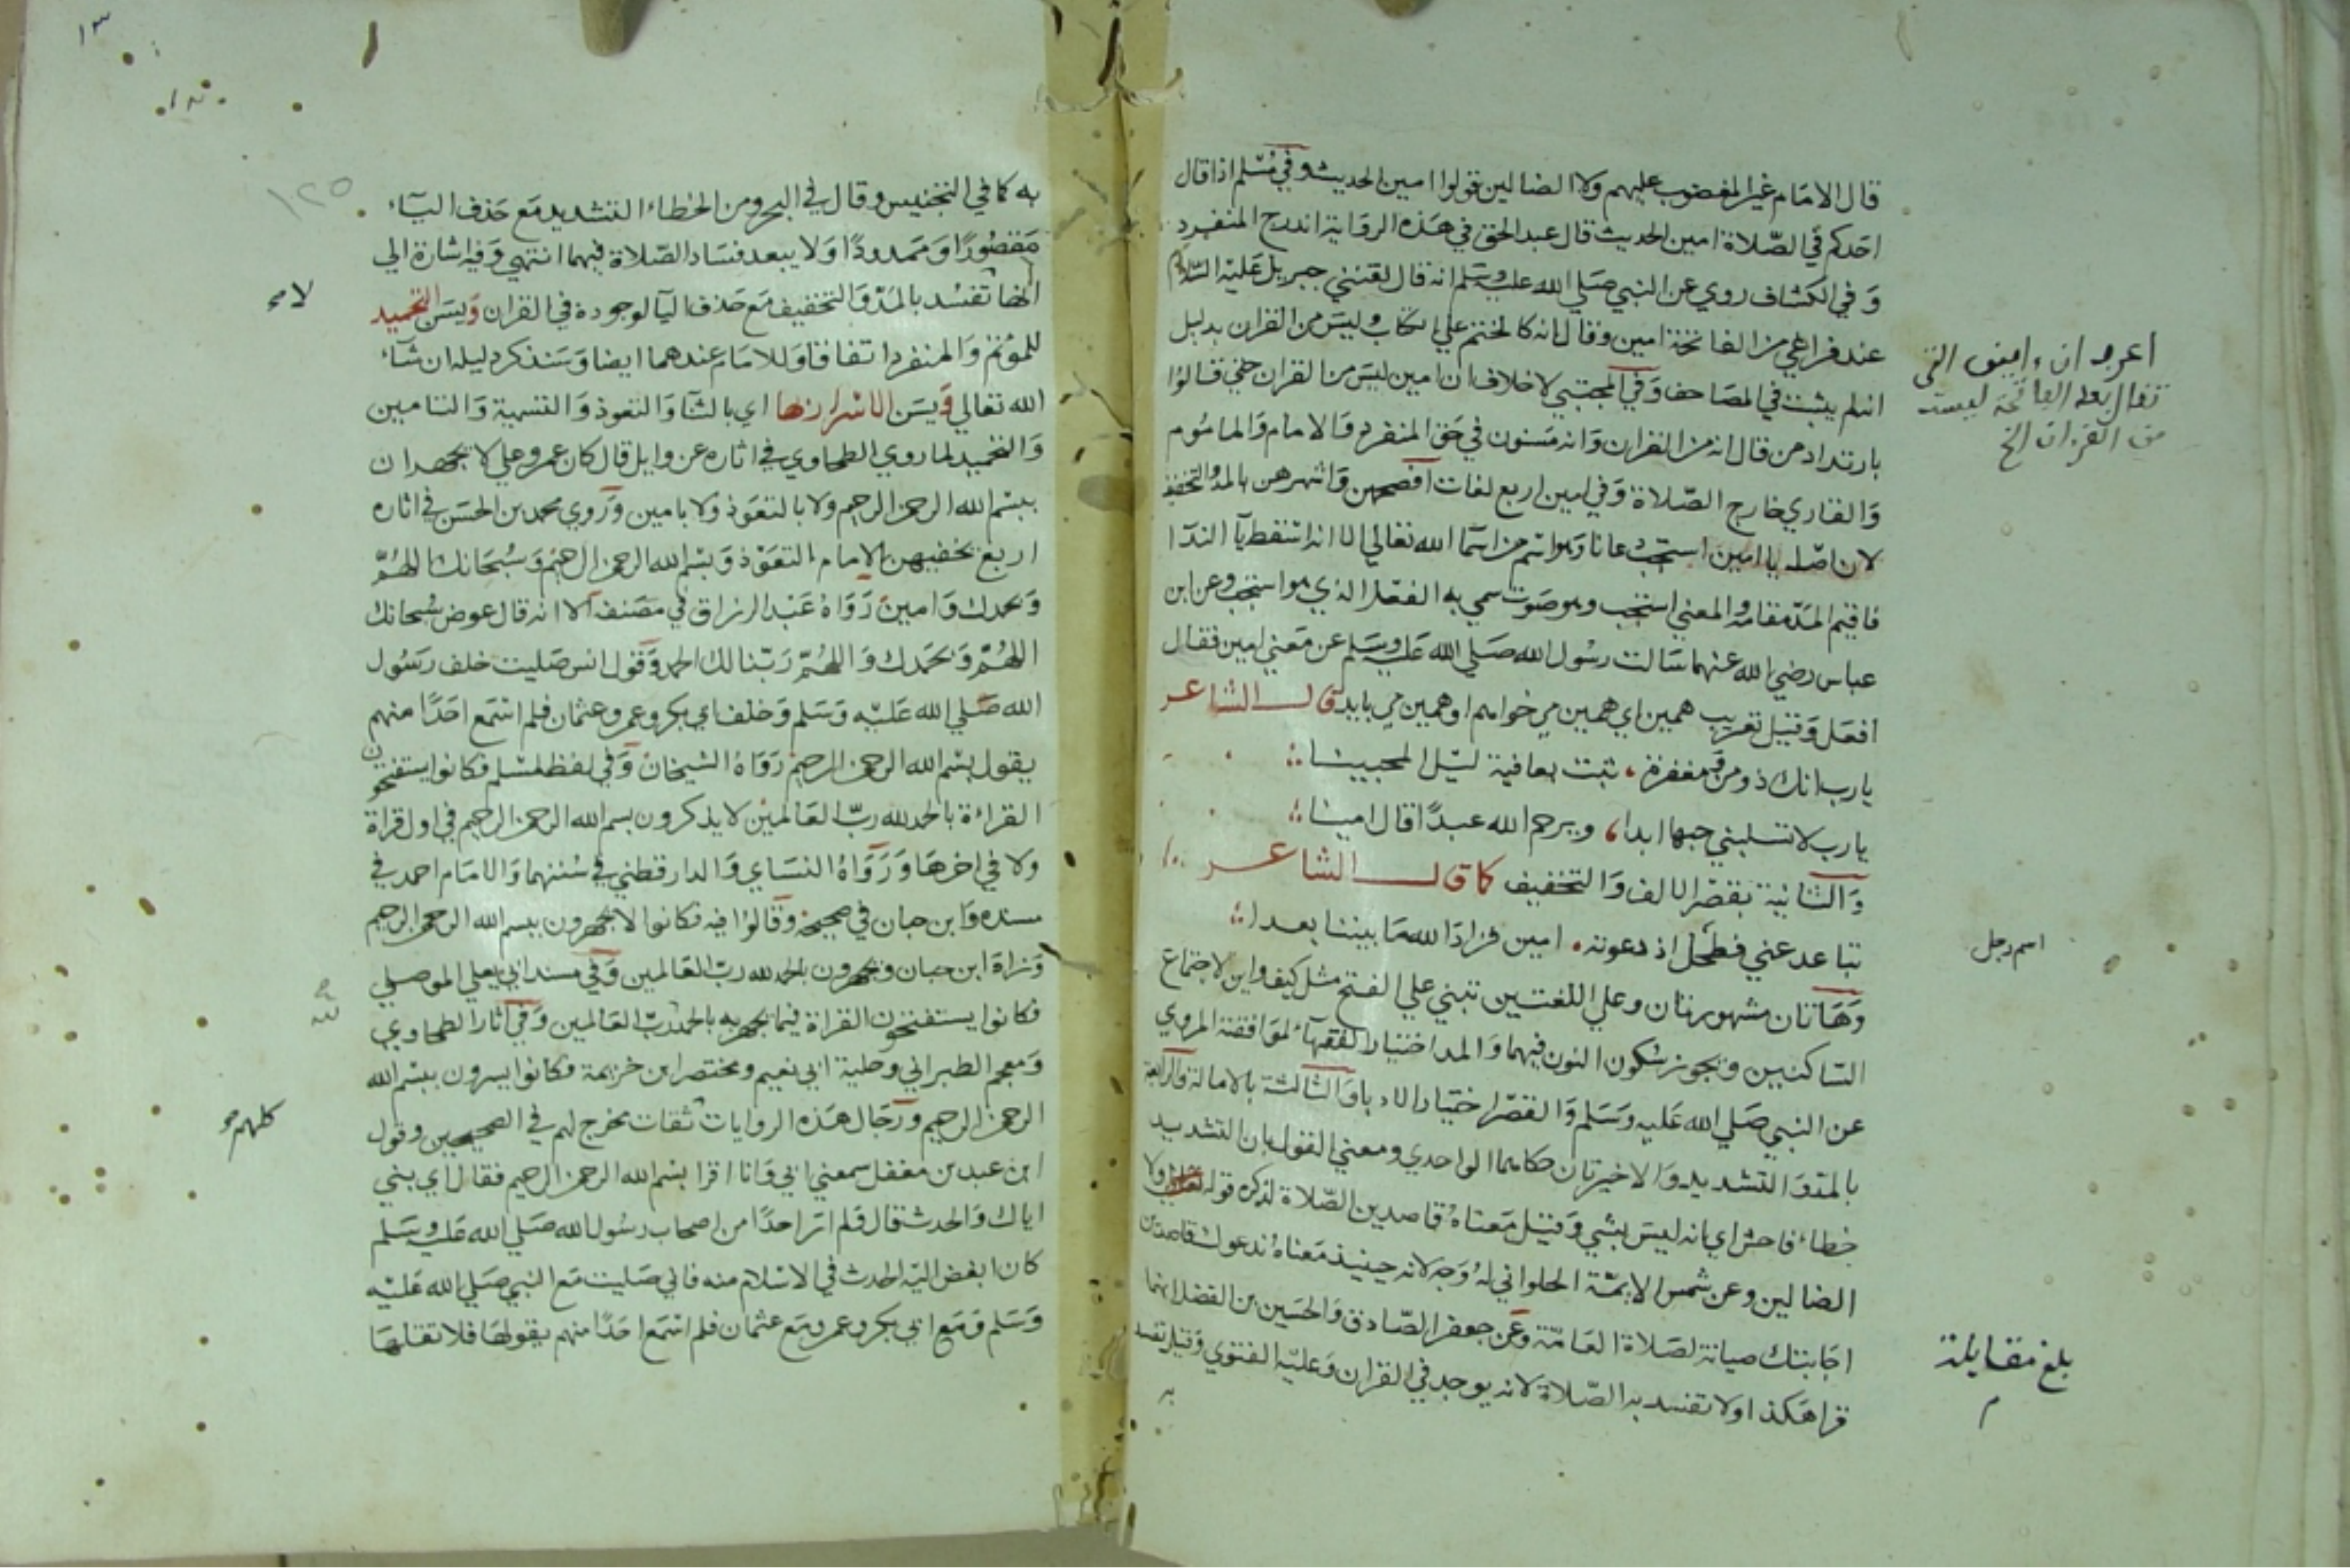 قال الامام غير المغضوب عليهم ولا الضالين قولوا امين الحديث وفي مسلم اذا قال
احدكم في الصلاة امين الحديث قال عبد الحق في هذه الرواية اندرج المنفرد
وفي الكشاف روي عن النبي صلي الله عليه وسلم انه قال لقنني جبريل عليه السلام
عند فراغي من الفاتحة امين وقال انه كالختم علي الكتاب وليس من القران بدليل
انه لم يثبت في المصاحف وفي المجتبي لا خلاف ان امين ليس من القران حتي قالوا
بارتداد من قال انه من القران وانه مسنون في حق المنفرد والامام والماموم
والقاري خارج الصلاة وفي امين اربع لغات افصحهن واشهرهن بالمد والتخفيف
لان اصله يا امين استجب دعانا وهو اسم من اسما الله تعالي الا انه اسقط يا الندا
فاقيم المد مقامه والمعني استجب وهو صوت سمي به الفعل الذي هو استجب وعن ابن
عباس رضي الله عنهما سالت رسول الله صلي الله عليه وسلم عن معني امين فقال
افعل وقيل تعريب همين اي همين مي خواهم او همين مي بايد قال الشاعر
يارب انك ذو من ومغفرة ، ثبت بعافية ليل المحبينا
يارب لا تسلبني حبها ابدا ، ويرحم الله عبدا قال امينا
والثانية بقصر الالف والتخفيف كما قال الشاعر
تباعد عني فطحل اذ دعوته ، امين فزاد الله ما بيننا بعدا
وهاتان مشهورتان وعلي اللغتين تبني علي الفتح مثل كيف واين لاجتماع
الساكنين ويجوز سكون النون فيهما والمد اختيار الفقهاء لموافقته المروي
عن النبي صلي الله عليه وسلم والقصر اختيار الادباء والثالثة بالامالة والرابعة
بالمد والتشديد والاخيرتان حكاهما الواحدي ومعني القول بان التشديد
خطاء فاحش اي انه ليس بشي وقيل معناه قاصدين الصلاة لذكره قوله تعالي ولا
الضالين وعن شمس الايمة الحلواني له وجه لانه حينيذ معناه ندعوك قاصدين
اجابتك صيانة لصلاة العامة وعن جعفر الصادق والحسين بن الفضل انهما
قراه هكذا ولا تفسد به الصلاة لانه يوجد في القران وعليه الفتوي وقيل تفسد
به
اعرف ان امين التي
تقال بعد الفاتحة ليست
من القران الخ
اسم رجل
بلغ مقابلة
م
١٣
١٢٥
به كما في التجنيس وقال في البحر ومن الخطاء التشديد مع حذف الياء
مقصورا وممدودا ولا يبعد فساد الصلاة فيهما انتهي وفيه اشارة الي
انها تفسد بالمد والتخفيف مع حذف اليا لوجوده في القران ويسن التحميد
للموتم والمنفرد اتفاقا وللامام عندهما ايضا وسنذكر دليله ان شاء
الله تعالي ويسن الاسرار بها اي بالثنا والتعوذ والتسمية والتامين
والتحميد لما روي الطحاوي في اثاره عن وايل قال كان عمر وعلي لا يجهران
ببسم الله الرحمن الرحيم ولا بالتعوذ ولا بامين وروي محمد بن الحسن في اثاره
اربع يخفيهن الامام التعوذ وبسم الله الرحمن الرحيم وسبحانك اللهم
وبحمدك وامين رواه عبد الرزاق في مصنفه الا انه قال عوض سبحانك
اللهم وبحمدك واللهم ربنا لك الحمد وقول انس صليت خلف رسول
الله صلي الله عليه وسلم وخلف ابي بكر وعمر وعثمان فلم اسمع احدا منهم
يقول بسم الله الرحمن الرحيم رواه الشيخان وفي لفظ لمسلم فكانوا يستفتحون
القراءة بالحمد لله رب العالمين لا يذكرون بسم الله الرحمن الرحيم في اول قراة
ولا في اخرها ورواه النساي والدارقطني في سننهما والامام احمد في
مسنده وابن حبان في صحيحه وقالوا فيه فكانوا لا يجهرون ببسم الله الرحمن الرحيم
وزاد ابن حبان ويجهرون بالحمد لله رب العالمين وفي مسند ابي يعلي الموصلي
فكانوا يستفتحون القراة فيما يجهر به بالحمد لله رب العالمين وفي اثار الطحاوي
ومعجم الطبراني وحلية ابي نعيم ومختصر ابن خزيمة فكانوا يسرون ببسم الله
الرحمن الرحيم ورجال هذه الروايات ثقات مخرج لهم في الصحيحين وقول
ابن عبد بن مغفل سمعني ابي وانا اقرا بسم الله الرحمن الرحيم فقال اي بني
اياك والحدث قال فلم ار احدا من اصحاب رسول الله صلي الله عليه وسلم
كان ابغض اليه الحدث في الاسلام منه فاني صليت مع النبي صلي الله عليه
وسلم ومع ابي بكر وعمر ومع عثمان فلم اسمع احدا منهم يقولها فلا تقلها
كلهم